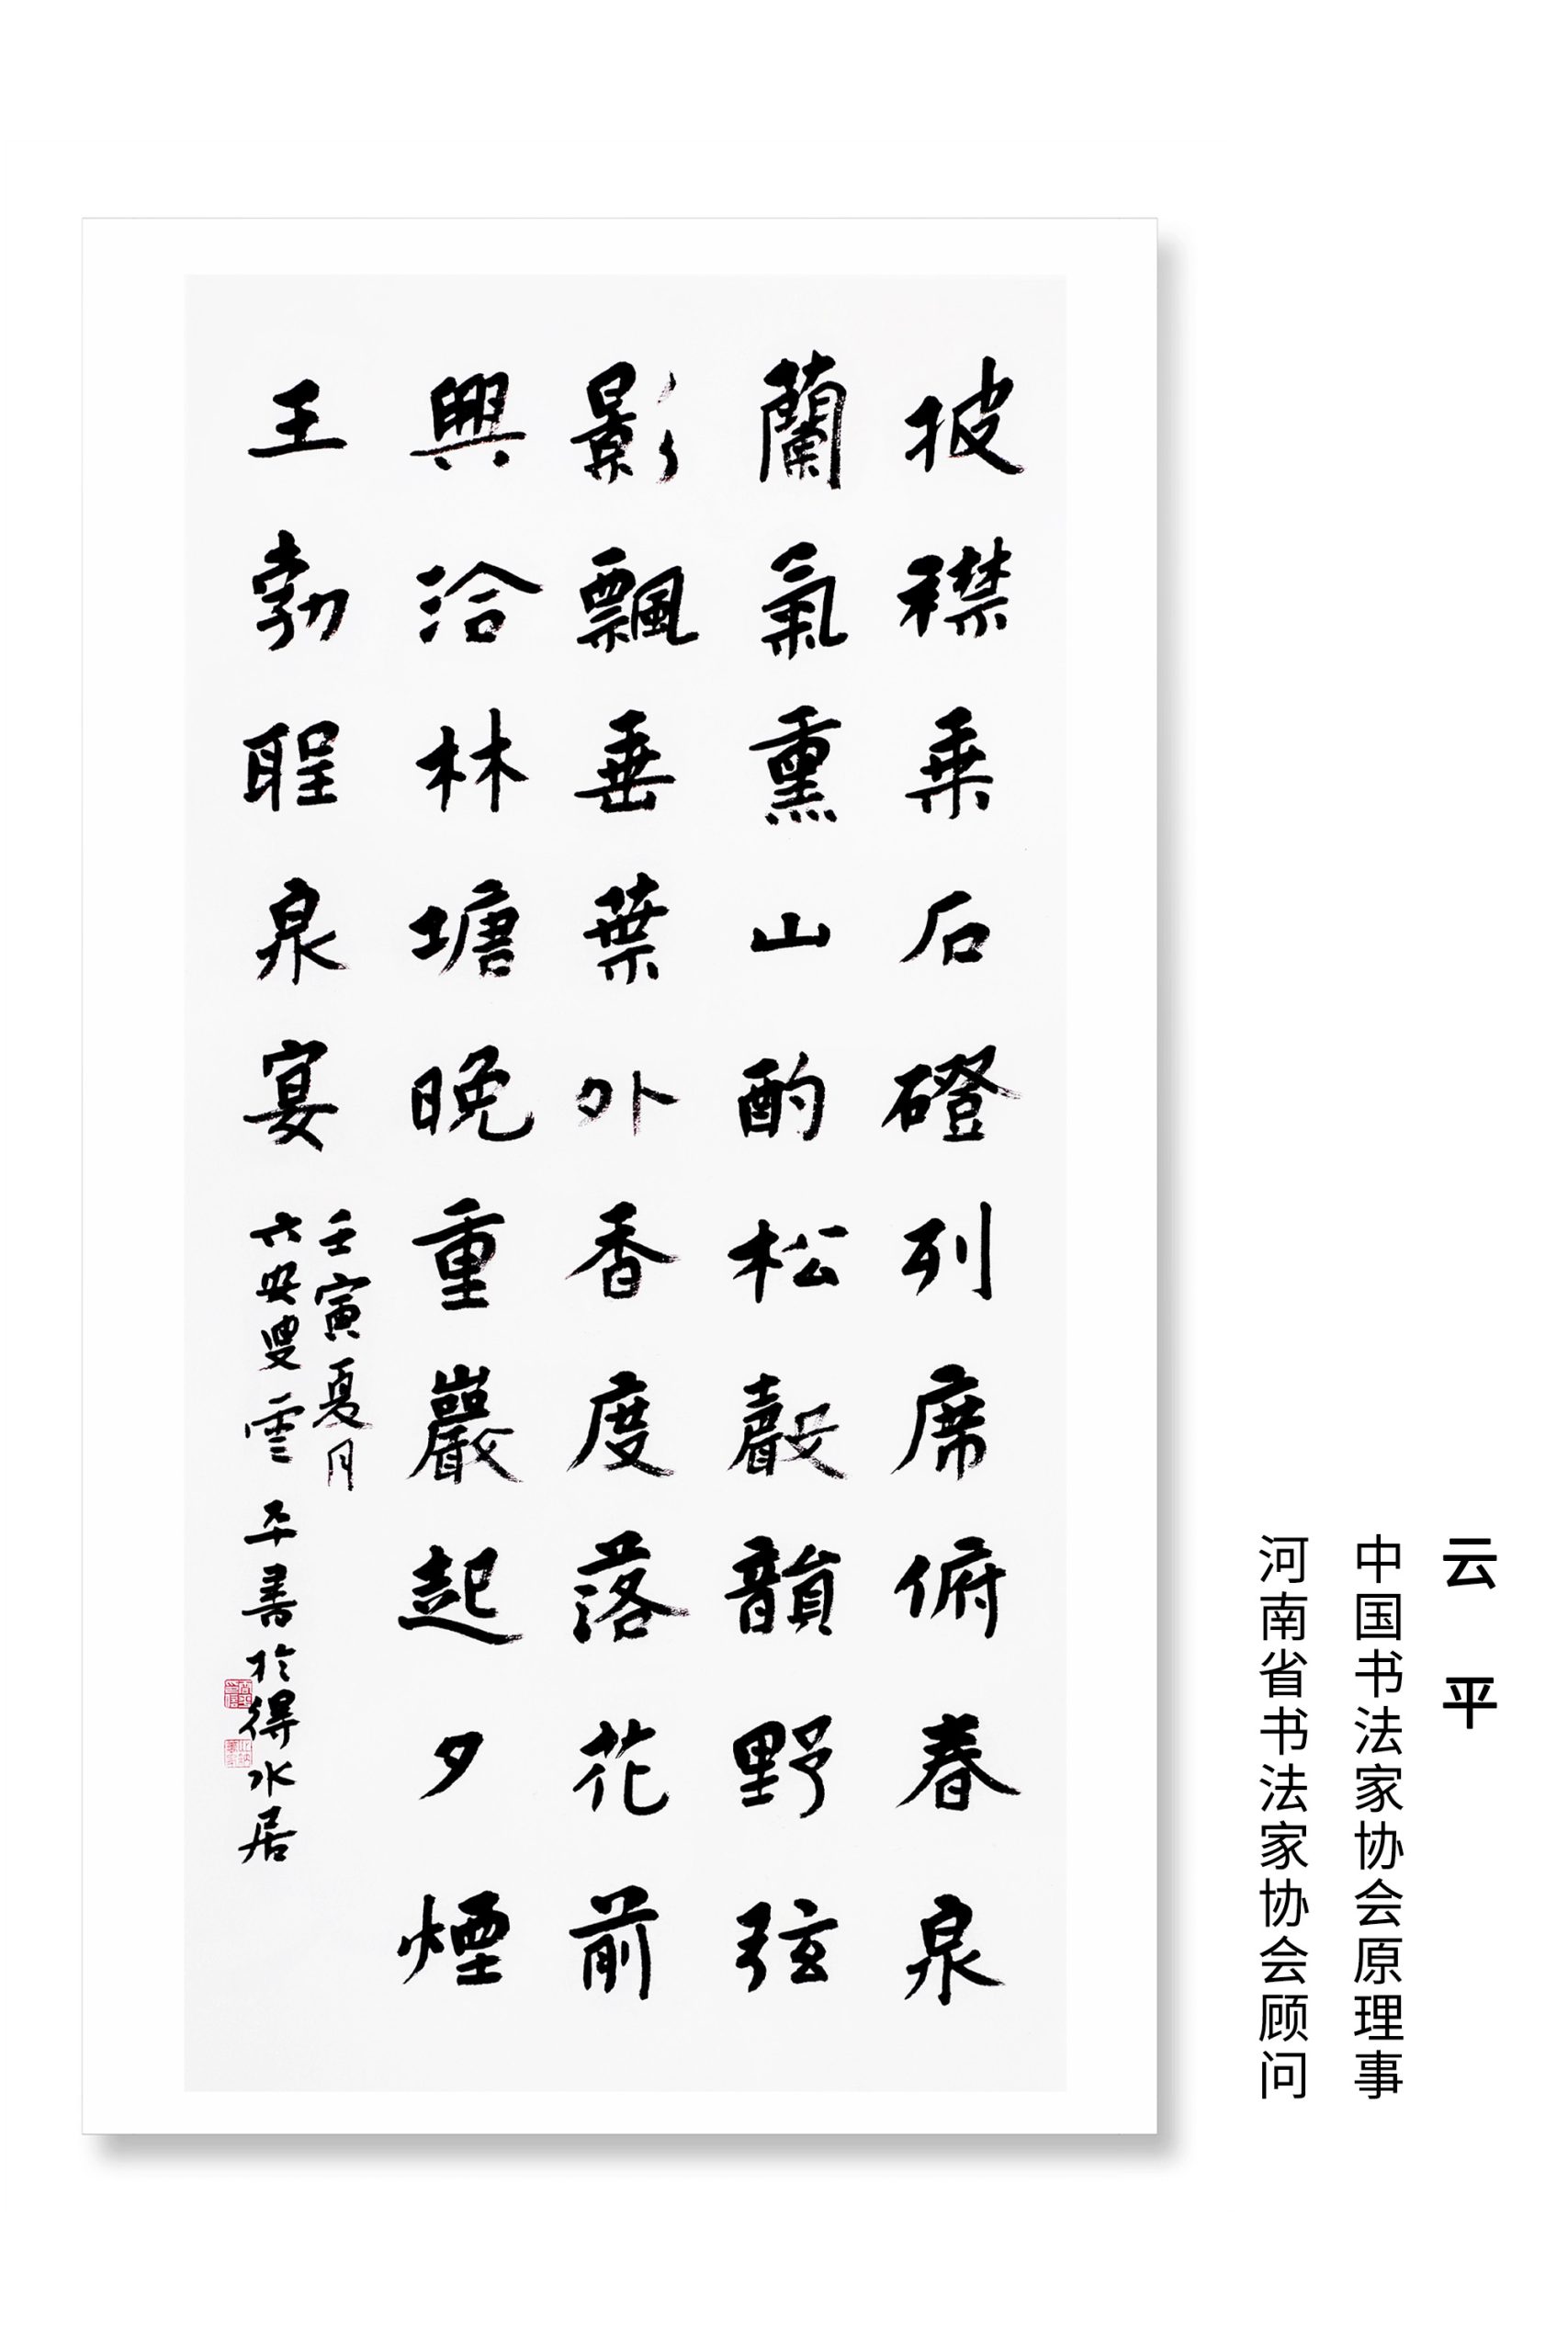 披襟乘石磴列席俯春泉
蘭氣熏山酌松聲韻野弦
影飄垂葉外香度落花前
興洽林塘晚重巖起夕煙
王勃聖泉宴
壬寅夏月
六安叟雲平書於得水居
云平
中国书法家协会原理事
河南省书法家协会顾问